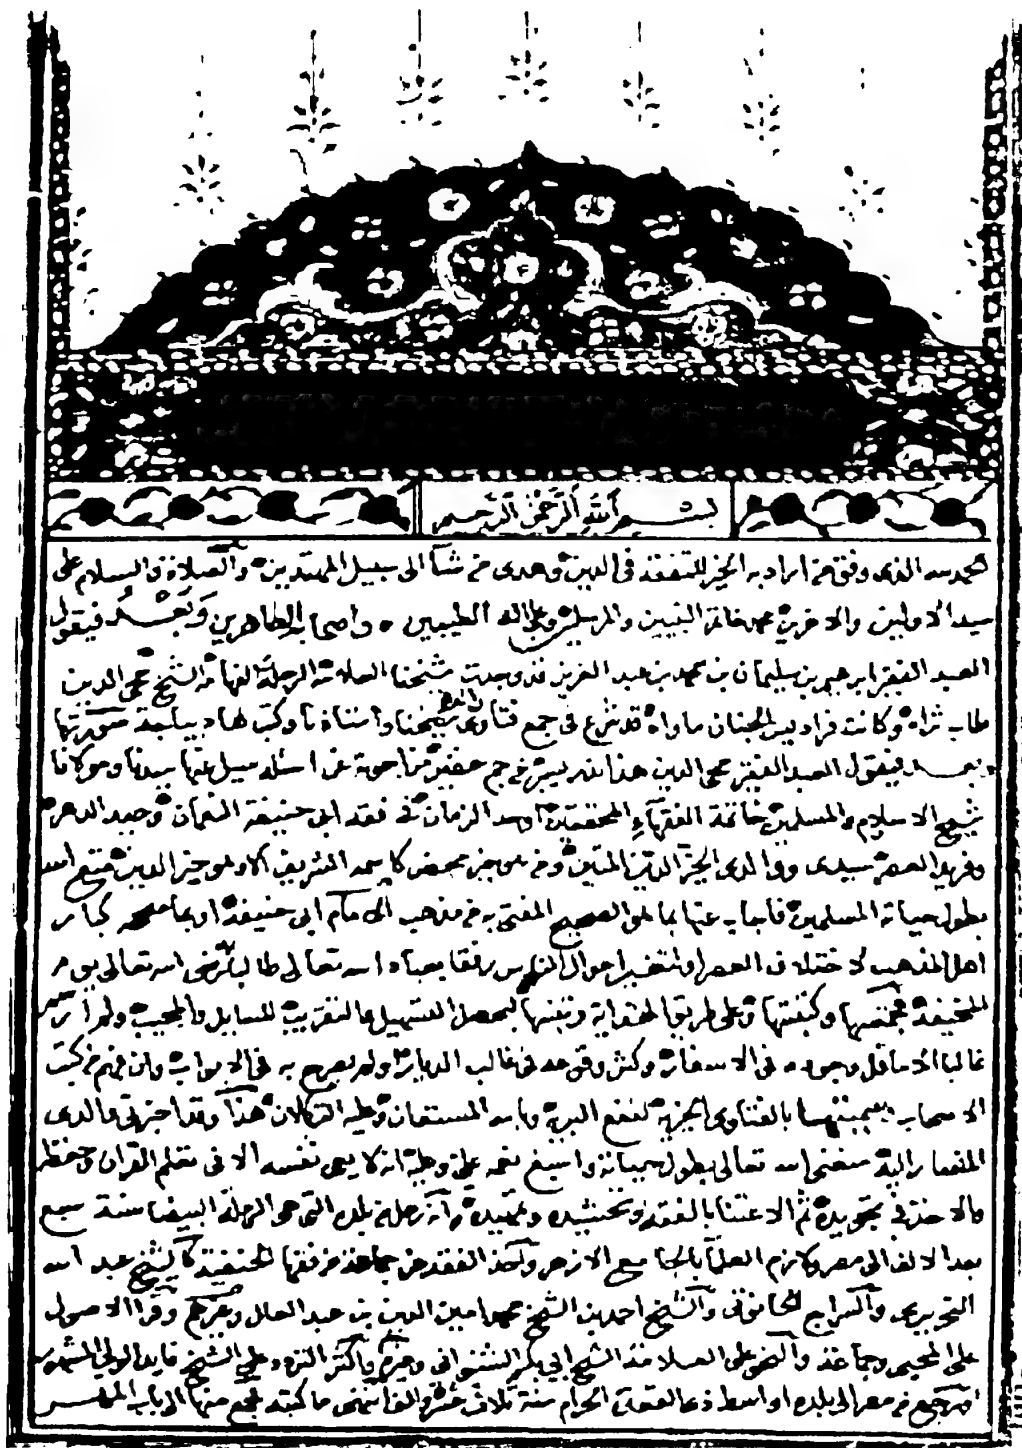 بسم الله الرحمن الرحيم
الحمد لله الذى وفق من اراد به الخير للتفقه فى الدين وهدى من شآ الى سبيل المهتدين والصلاة والسلام على
سيد الاولين والاخرين محمد خاتم النبيين والمرسلين وعلى اله الطيبين واصحابه الطاهرين وبعد فيقول
العبد الفقير ابرهيم بن سليمان بن محمد بن عبد العزيز قد وجدت شيخنا العلامة الرحلة الفهامة الشيخ محيى الدين
طاب ثراه وكانت فراديس الجنان ماواه قد شرع فى جمع فتاوى شيخنا واستاذنا وكتب لها ديباجة صورتها
وبعد فيقول العبد الفقير محيى الدين هذا نذر يسير فى جم حقير من اجوبة عن اسئلة سيل عنها سيدنا ومولانا
شيخ الاسلام والمسلمين خاتمة الفقهآء المحققين اوحد الزمان فى فقه ابى حنيفة النعمان وحيد الدهر
وفريد العصر سيدى ووالدى خير الدين المتين ومن هو خير محض كاسمه الشريف الا وهو خير الدين متع الله
بطول حياته المسلمين فاجاب عنها بما هو الصحيح المفتى به فى مذهب الامام ابى حنيفة او بما صححه كبار
اهل المذهب لاختلاف العصر او لتغير احوال الناس رفقا بعباد الله تعالى طالبا رضى الله تعالى يوم
للحنيفة وكتبتها على طريق الهداية ورتبتها ليحصل التسهيل والتقريب للسايل والمجيب ولم ار
غالبا الا ما قل وجوده فى الاسفار وكثر وقوعه فى غالب الديار ولم يصرح به فى الابواب وان فهم من كتب
الاصحاب وسميتها بالفتاوى الخيرية لنفع البرية وبالله المستعان وعليه التكلان هذا وقد اخبرنى والدى
المشار اليه متعنى الله تعالى بطول حياته واسبغ نعمه على وعليه انه لا يعى نفسه الا فى تعلم القران وحفظه
والاخذ فى تجويده ثم الاعتنا بالفقه وانه رحل من بلده التى هى الرملة البيضا سنة سبع
بعد الالف الى مصر ولازم العلمآ بالجامع الازهر واخذ الفقه عن جماعة من فقها الحنفية كالشيخ عبد الله
النحريرى والسراج الحانوتى والشيخ احمد بن الشيخ محمد امين الدين بن عبد العال وغيرهم وقرا الاصول
على المحبى وجماعة والنحو على العلامة الشيخ ابى بكر الشنوانى وغيره واكثر التردد على الشيخ فايد الولى المشهور
ورجع من مصر الى بلده اواسط ذى القعدة الحرام سنة ثلاث عشرة والف انتهى ما كتبه فجمع منها الى باب المهر